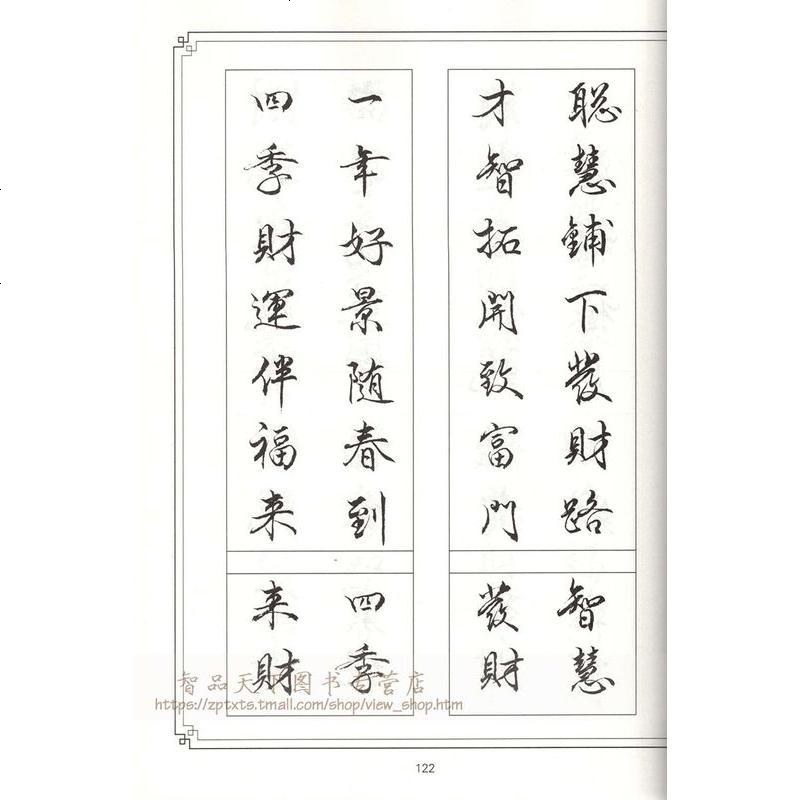 聪慧鋪下發財路
才智拓開致富門
智慧
發財
一年好景随春到
四季財運伴福来
四季
来財
智品天下图书专营店
https://zptxts.tmall.com/shop/view_shop.htm
122